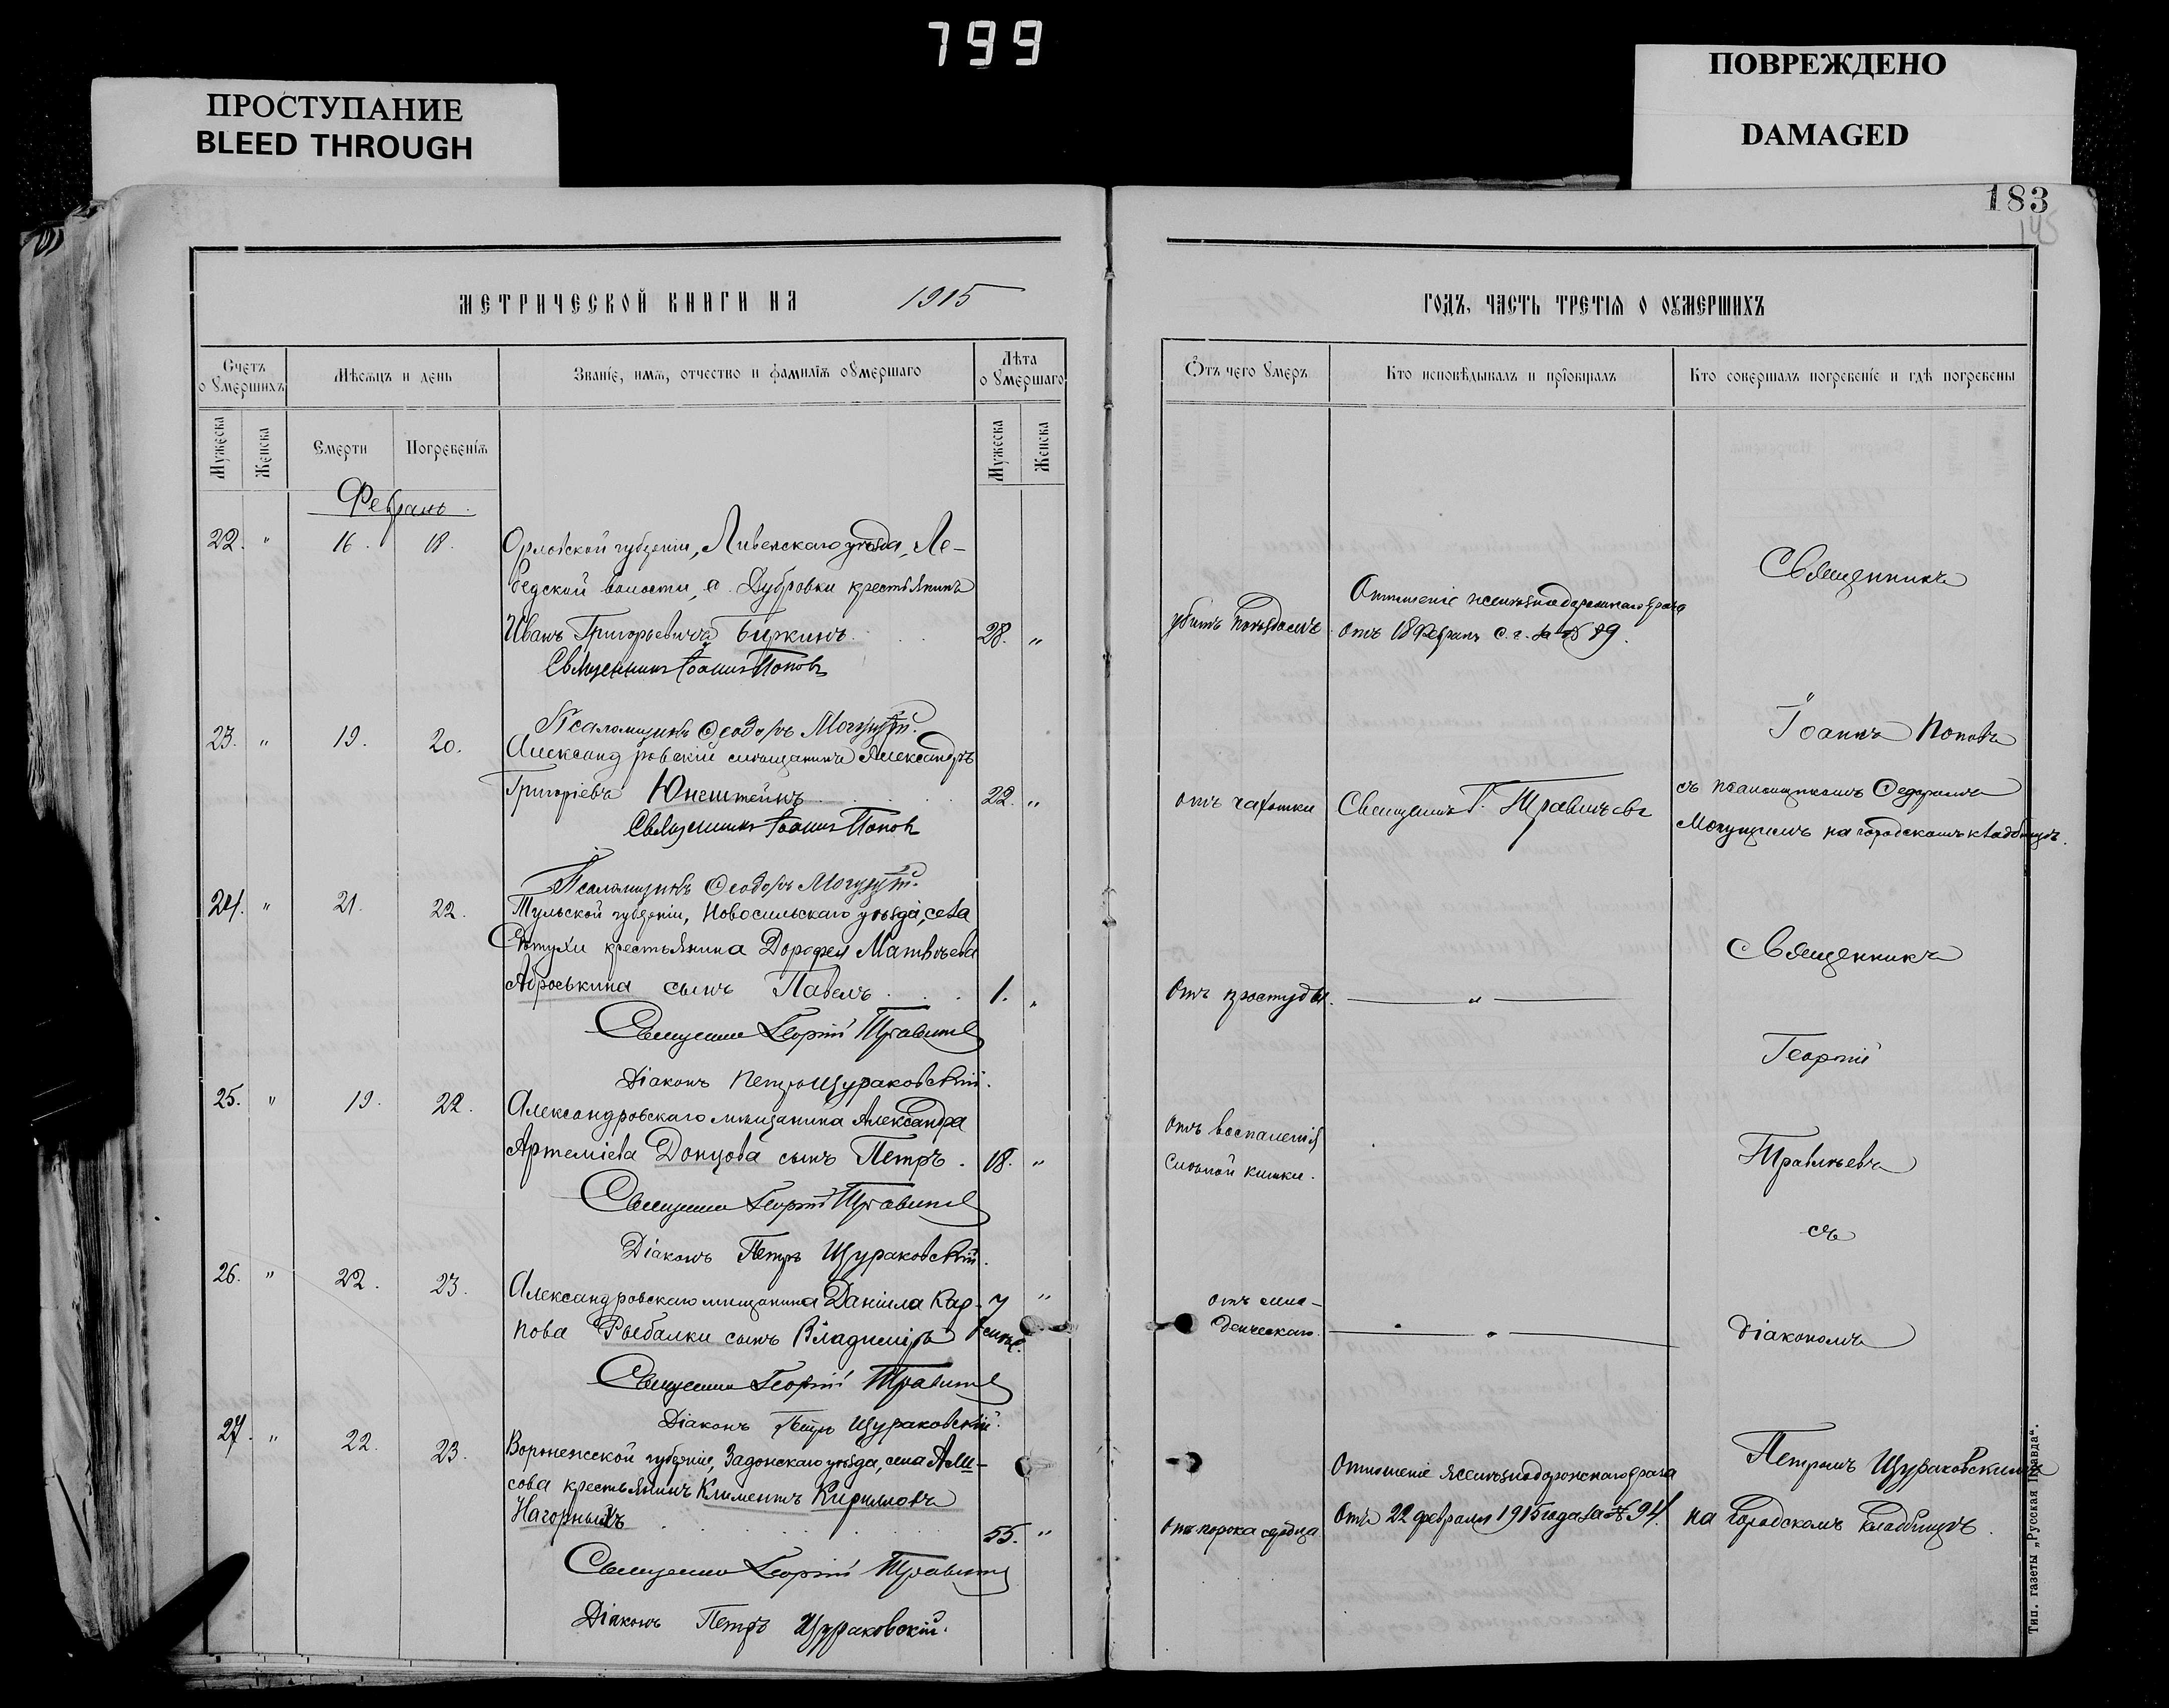 799
ПРОСТУПАНИЕ
BLEED THROUGH
ПОВРЕЖДЕНО
DAMAGED
183
145
МЕТРИЧЕСКОЙ КНИГИ НА 1915
ГОДЪ, ЧАСТЬ ТРЕТІѦ О ОУМЕРШИХЪ
Счетъ о умершихъ
Мѣсяцъ и день
Званіе, имѧ, отчество и фамиліѧ оумершаго
Лѣта о умершаго
Отъ чего умеръ
Кто исповѣдывалъ и пріобщалъ
Кто совершалъ погребеніе и гдѣ погребены
Мужеска
Женска
Смерти
Погребеніѧ
Мужеска
Женска
Февраль.
22. " 16. 18. Орловской губерніи, Ливенскаго уѣзда, Ле-
бедской волости, д. Дубровки крестьянинъ
Иванъ Григорьевичъ Биркинъ 28. "
Священникъ Іоаннъ Поповъ
Псаломщикъ Ѳеодоръ Могущій.
убитъ поѣздомъ.
Отношеніе желѣзнодорожнаго врача
отъ 18 Февраля с.г. за № 89.
23. " 19. 20. Александровскій мѣщанинъ Александръ
Григоріевъ Юнештейнъ 22. "
Священникъ Іоаннъ Поповъ
Псаломщикъ Ѳеодоръ Могущій.
отъ чахотки
Священникъ Г. Травлѣевъ
Священникъ
Іоаннъ Поповъ
съ псаломщикомъ Ѳедоромъ
Могущимъ на городскомъ кладбищѣ.
24. " 21. 22. Тульской губерніи, Новосильскаго уѣзда, села
крестьянина Дорофея Матвѣева
Аброськина сынъ Павелъ 1. "
Священникъ Георгій
Діаконъ Петръ Щураковскій.
Отъ простуды. "
25. " 19. 22. Александровскаго мѣщанина Александра
Артеміева Донцова сынъ Петръ. 18. "
Священникъ Георгій
Діаконъ Петръ Щураковскій.
отъ воспаленія
слѣпой кишки.
26. " 22. 23. Александровскаго мѣщанина Даніила Кар-
пова Рыбалки сынъ Владиміръ 7 "
Священникъ Георгій
Діаконъ Петръ Щураковскій.
отъ мла-
денческаго. "
27. " 22. 23. Воронежской губерніи, Задонскаго уѣзда, села
сова крестьянинъ Климентъ Кирилловъ
Нагорныхъ 55. "
Священникъ Георгій
Діаконъ Петръ Щураковскій.
Отъ порока сердца
Отношеніе желѣзнодорожнаго врача
отъ 22 февраля 1915 года за № 94.
Священникъ
Георгій
Травлѣевъ
съ
діакономъ
Петромъ Щураковскимъ
на городскомъ кладбищѣ.
Тип. газеты „Русская Правда“.